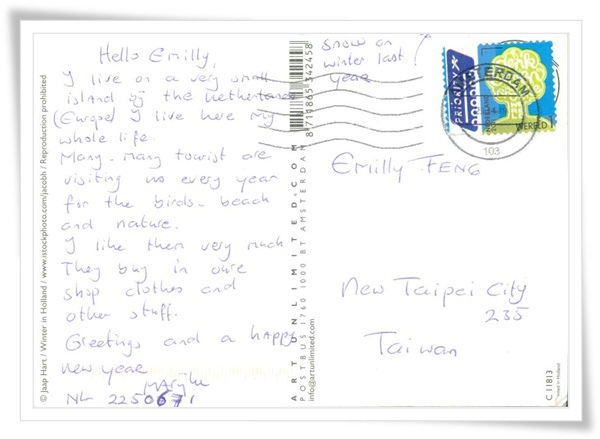 Hello Emilly,
I live on a very small
island of the Netherlands
(Europe) I live here my
whole life.
Many - many tourist are
visiting us every year
for the birds - beach
and nature.
I like them very much
They buy in oure
shop clothes and
other stuff.
Greetings and a happy
new year
Marijke
NL 2250671
snow on
winter last
year
Emilly FENG
New Taipei City
235
Taiwan
© Jaap Hart / Winter in Holland / www.istockphoto.com/jacobh / Reproduction prohibited
8 718865 342458
ART UNLIMITED.COM
POSTBUS 1760 1000 BT AMSTERDAM
info@artunlimited.com
C11813
printed in Holland
PRIORITY
WERELD
AMSTERDAM
103